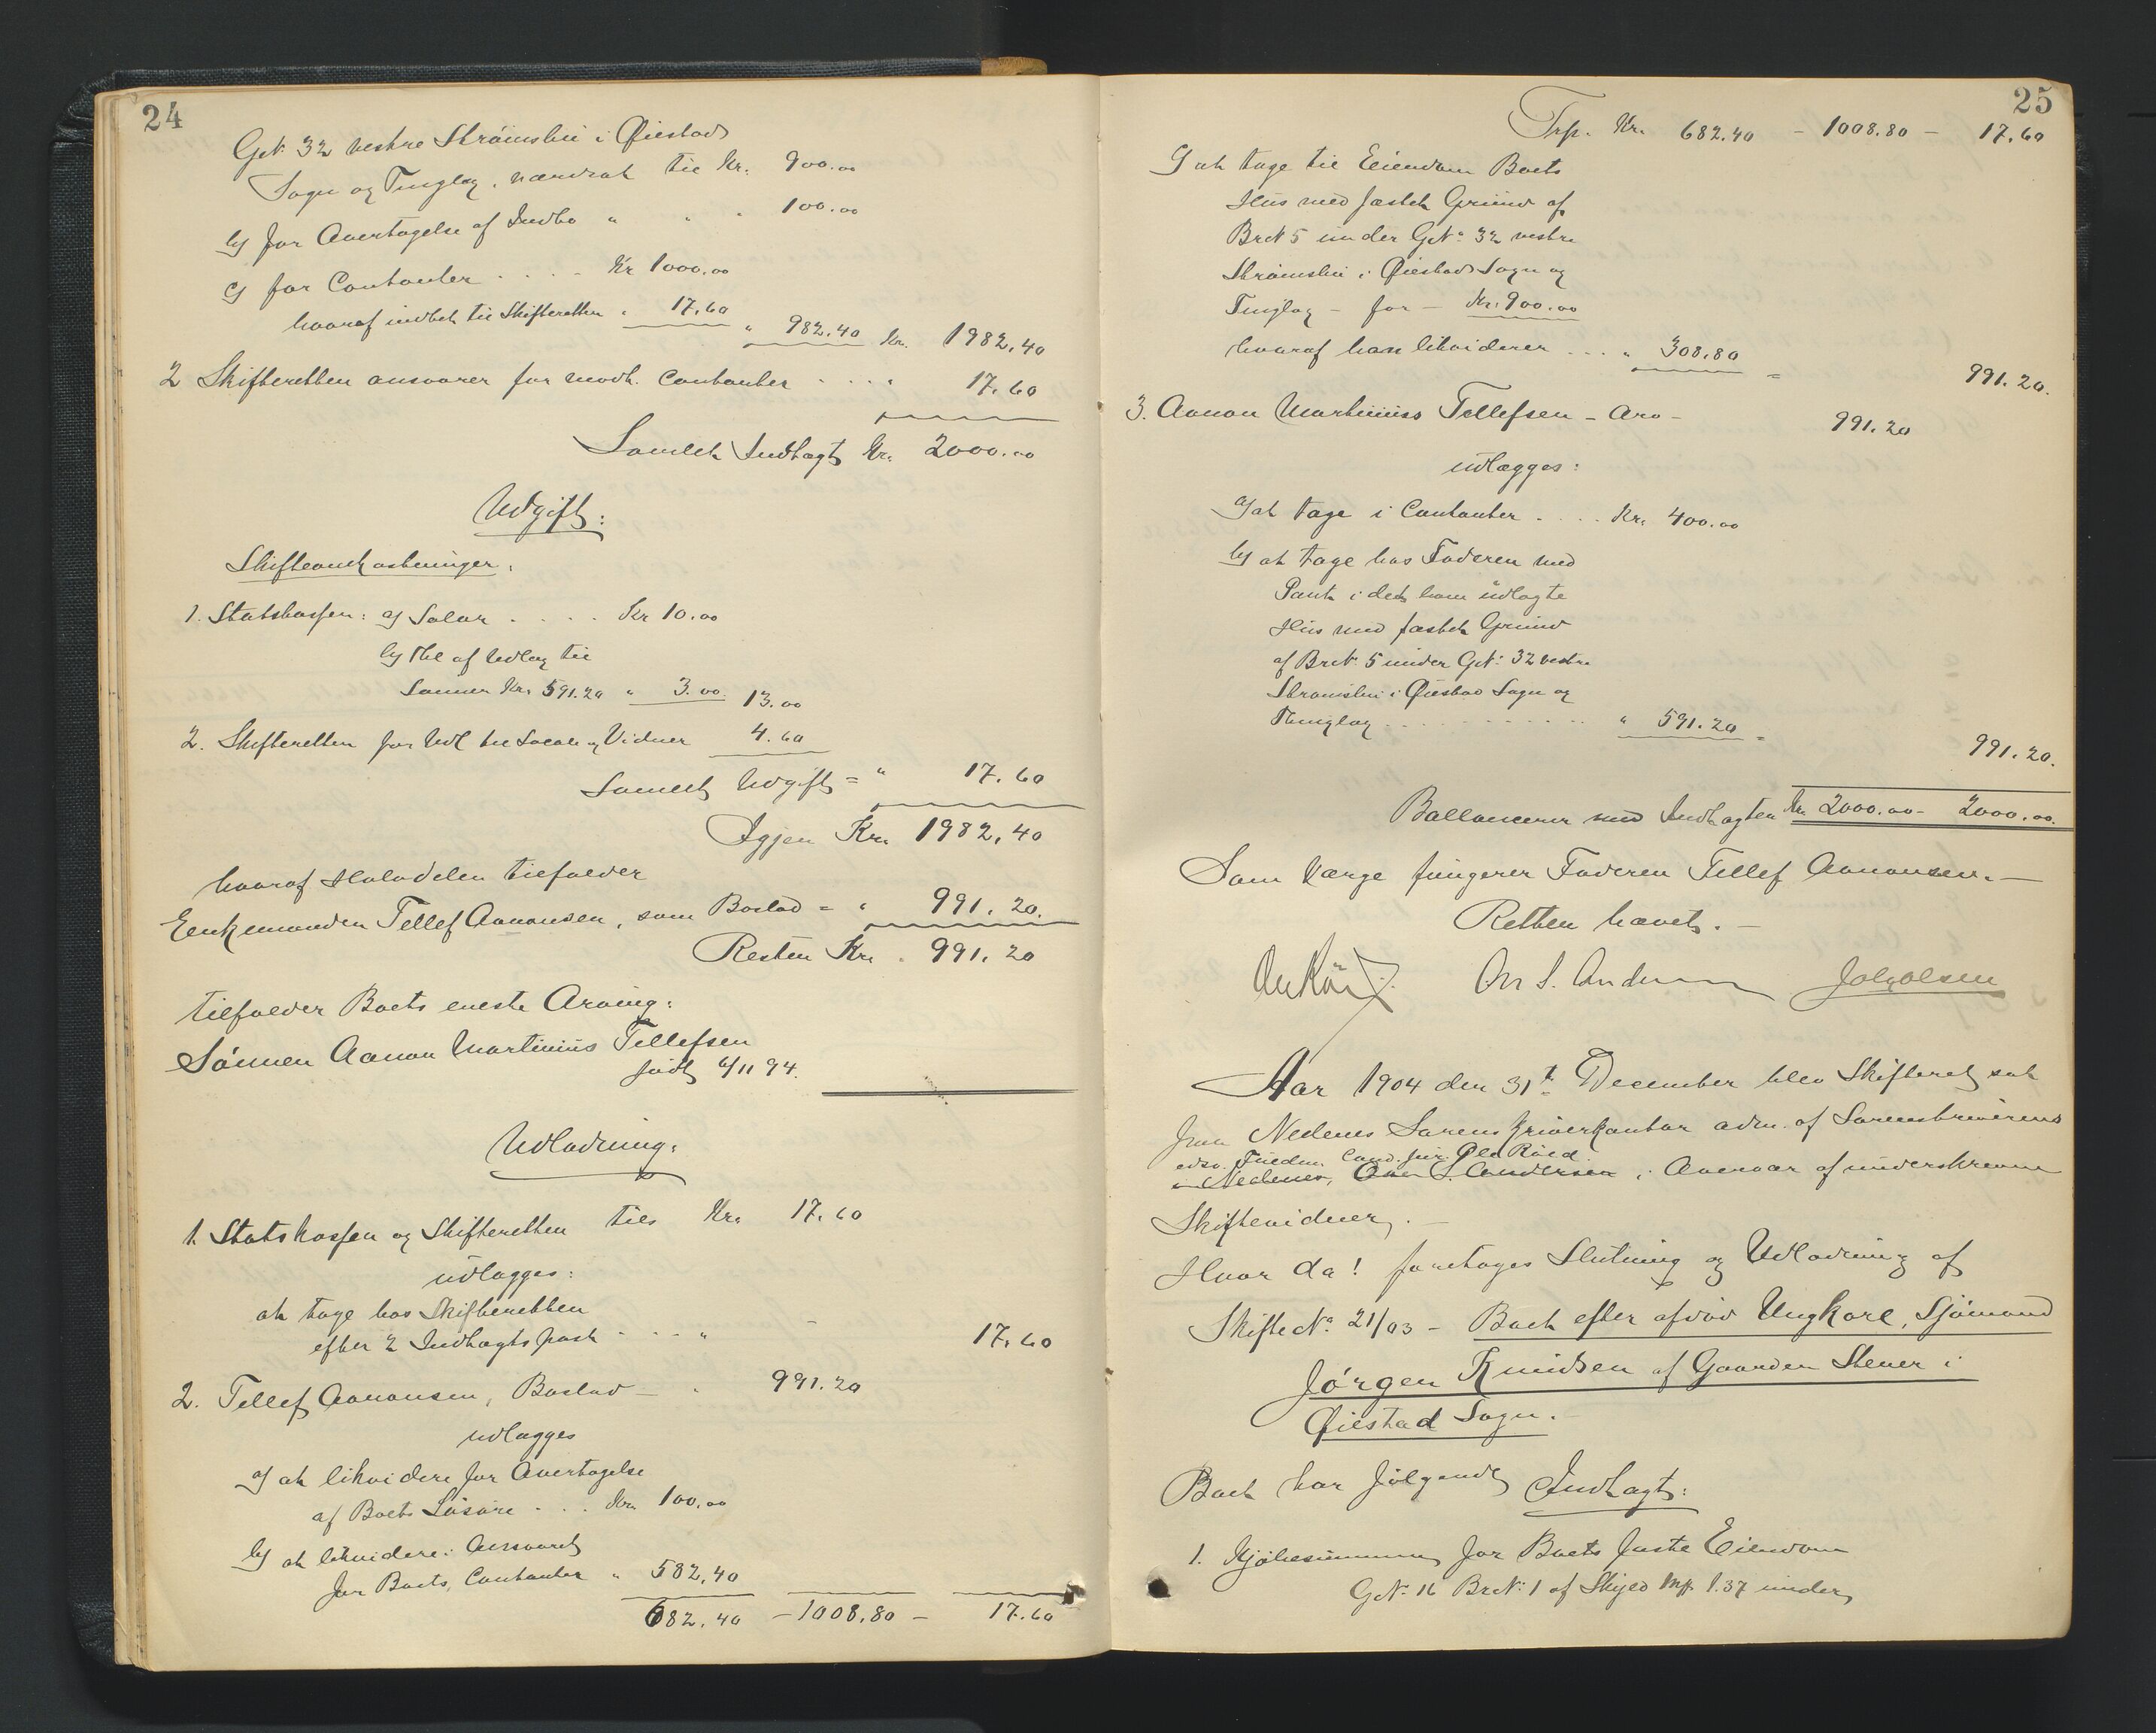 24
GrN: 32 vestre Strømsbu i Øiestad
Sogn og Tinglag, værdsat til Kr. 900.00
b) for Overtagelse af Indbo " " " 100.00
c) for Contanter . . . . Kr 1000.00
hvoraf indbet. til Skifteretten " 17.60 " 982.40 Kr. 1982.40
2 Skifteretten ansvarer for modt. Contanter . . . " 17.60
Samlet Indtægt Kr. 2000.00
Udgift:
Skifteomkostninger.
1. Statskassen: a) Salær . . . . Kr 10.00
b) af Udlæg til
Sønnen Kr. 591.20 " 3.00 13.00
2. Skifteretten for Udl. til Locale og Vidner 4.60
Samlet Udgift = " 17.60
Igjen Kr. 1982.40
hvoraf Halvdelen tilfalder
Enkemanden Tellef Aanonsen, som Boslod = " 991.20.
Resten Kr. . 991.20
tilfalder Boets eneste Arving:
Sønnen Aanon Martinius Tellefsen
født 6/11 94.
Udlodning:
1. Statskassen og Skifteretten tils Kr. 17.60
udlægges:
at tage hos Skifteretten
efter 2 Indtægtspost . . . " - 17.60
2. Tellef Aanonsen, Boslod - . 991.20
udlægges
a) at likvidere for Overtagelse
af Boets Løsøre . . . Kr. 100.00
b) at likvidere i Ansvaret
for Boets Contanter " 582.40
682.40 - 1008.80 - 17.60
25
Trp. Kr. 682.40 - 1008.80 - 17.60
c) at tage til Eiendom Boets
Hus med fæstet Grund af
BrN 5 under GrN: 32 vestre
Strømsbu i Øiestad Sogn og
Tinglag - for - Kr. 900.00
hvoraf han likviderer . . . " 308.80 =
991.20.
3. Aanon Martinius Tellefsen - Arv - 991.20
udlægges:
a) at tage i Contanter . . . . Kr. 400.00
b) at tage hos Faderen med
Pant i det ham udlagte
Hus med fæstet Grund
af BrN: 5 under GrN: 32 vestre
Strømsbu i Øiestad Sogn og
Thinglag . . . . . . . . . . " 591.20 =
991.20.
Ballancerer med Indtægten Kr. 2000.00 - 2000.00.
Som Værge fungerer Faderen Tellef Aanonsen. -
Retten hævet. -
On S. Andersen
Aar 1904 den 31t December blev Skifteret sat
paa Nedenes Sorenskriverkontor adm. af Sorenskriverens
edsv. Fuldm. Cand. jur. Ole Røed
i Nedenes, S. Andersen, i Overvær af underskrevne
Skiftevidner. -
Hvor da! foretages Slutning og Udlodning af
Skifte No: 21/03 - Boet efter afdød Ungkarl, Sjømand
Jørgen Knudsen af Gaarden Stener i
Øiestad Sogn. -
Boet har følgende Indtægt:
1. Kjøbesummen for Boets faste Eiendom
GrN: 16 BrN: 1 af Skyld Mrk 1.37 under